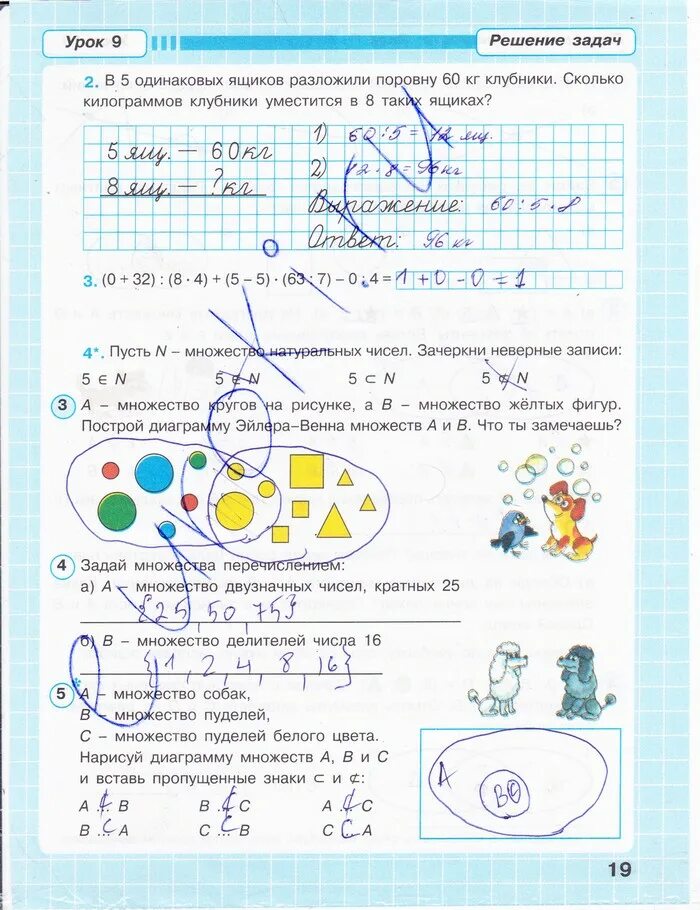 Урок 9
Решение задач
2. В 5 одинаковых ящиков разложили поровну 60 кг клубники. Сколько
килограммов клубники уместится в 8 таких ящиках?
5 ящ. – 60 кг
8 ящ. – ? кг
1) 60 : 5 = 12 ящ.
2) 12 · 8 = 96 кг
Выражение: 60 : 5 · 8
Ответ: 96 кг
3. (0 + 32) : (8 · 4) + (5 – 5) · (63 : 7) – 0 : 4 = 1 + 0 – 0 = 1
4*. Пусть N – множество натуральных чисел. Зачеркни неверные записи:
5 ∈ N 5 ∉ N 5 ⊂ N 5 ⊄ N
3 A – множество кругов на рисунке, а B – множество жёлтых фигур.
Построй диаграмму Эйлера–Венна множеств A и B. Что ты замечаешь?
4 Задай множества перечислением:
а) A – множество двузначных чисел, кратных 25
{25, 50, 75}
б) B – множество делителей числа 16
{1, 2, 4, 8, 16}
5* A – множество собак,
B – множество пуделей,
C – множество пуделей белого цвета.
Нарисуй диаграмму множеств A, B и C
и вставь пропущенные знаки ⊂ и ⊄:
A ⊄ B B ⊄ C A ⊄ C
B ⊂ A C ⊂ B C ⊂ A
A
B
19